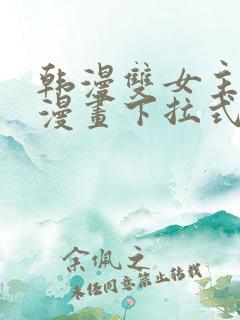 韩漫雙女主
漫畫下拉式
余佩之
未经同意禁止转载